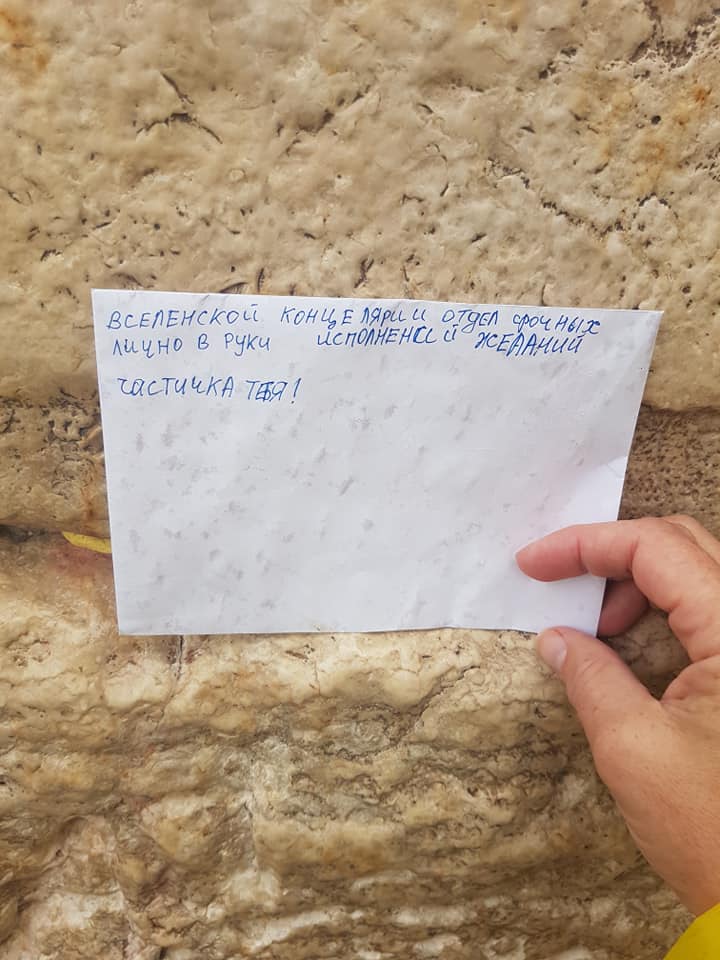 ВСЕЛЕНСКОЙ КОНЦЕЛЯРИИ ОТДЕЛ СРОЧНЫХ
ЛИЧНО В РУКИ ИСПОЛНЕНИЙ ЖЕЛАНИЙ
ЧАСТИЧКА ТЕБЯ!